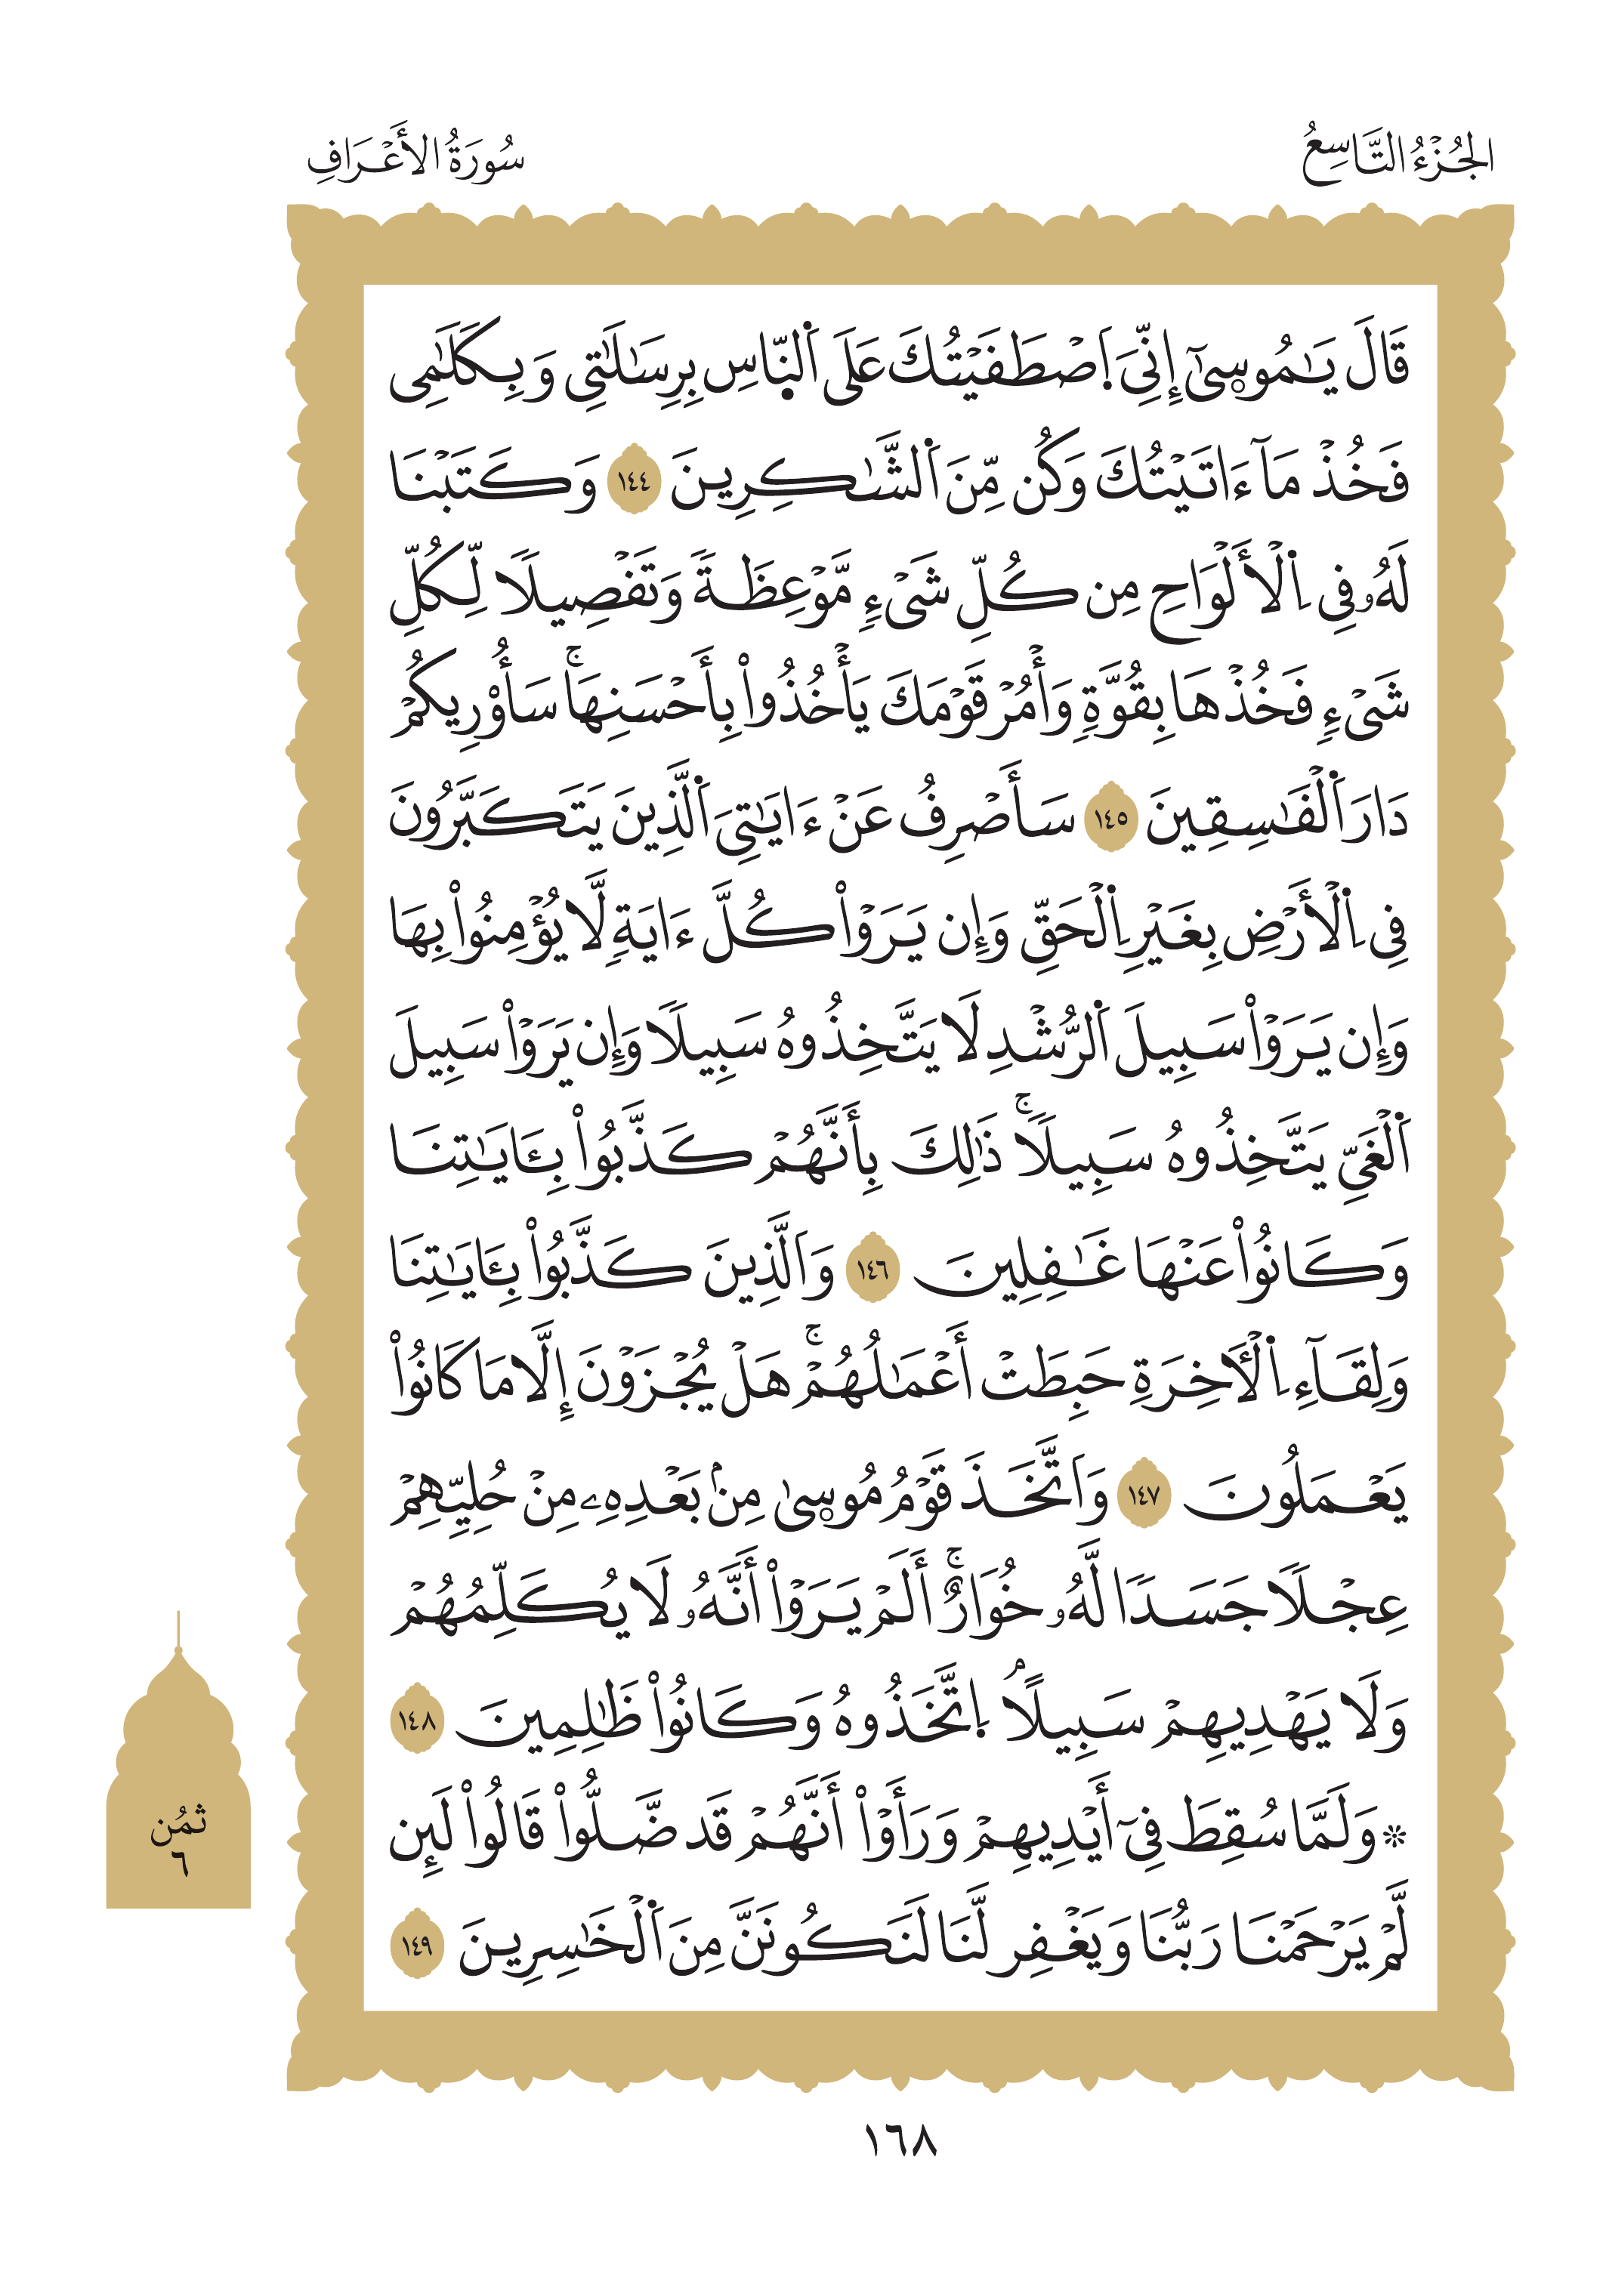 الجُزْءُ التَّاسِعُ
سُورَةُ الأَعْرَافِ
قَالَ يَـٰمُوسِىٰٓ إِنِّىَ اَ۪صْطَفَيْتُكَ عَلَى اَ۬لنّ۪اسِ بِرِسَـٰلَـٰتِى وَبِكَلَـٰمِى
فَخُذْ مَآ ءَاتَيْتُكَ وَكُن مِّنَ اَ۬لشَّـٰكِرِينَ ١٤٤ وَكَتَبْنَا
لَهُۥ فِى اِ۬لْأَلْوَاحِ مِن كُلِّ شَىْءٍ مَّوْعِظَةً وَتَفْصِيلًا لِّكُلِّ
شَىْءٍ فَخُذْهَا بِقُوَّةٍ وَأْمُرْ قَوْمَكَ يَأْخُذُواْ بِأَحْسَنِهَاۚ سَأُوْرِيكُمْ
دَارَ اَ۬لْفَـٰسِقِينَ ١٤٥ سَأَصْرِفُ عَنْ ءَايَـٰتِىَ اَ۬لَّذِينَ يَتَكَبَّرُونَ
فِى اِ۬لْأَرْضِ بِغَيْرِ اِ۬لْحَقِّ وَإِن يَرَوْاْ كُلَّ ءَايَةٍ لَّا يُؤْمِنُواْ بِهَا
وَإِن يَرَوْاْ سَبِيلَ اَ۬لرُّشْدِ لَا يَتَّخِذُوهُ سَبِيلًا وَإِن يَرَوْاْ سَبِيلَ
اَ۬لْغَىِّ يَتَّخِذُوهُ سَبِيلًاۚ ذَٰلِكَ بِأَنَّهُمْ كَذَّبُواْ بِـَٔايَـٰتِنَا
وَكَانُواْ عَنْهَا غَـٰفِلِينَ ١٤٦ وَاَلَّذِينَ كَذَّبُواْ بِـَٔايَـٰتِنَا
وَلِقَآءِ اِ۬لْأٓخِرَةِ حَبِطَتْ أَعْمَـٰلُهُمْۚ هَلْ يُجْزَوْنَ إِلَّا مَا كَانُواْ
يَعْمَلُونَ ١٤٧ وَاَتَّخَذَ قَوْمُ مُوسِىٰ مِنۢ بَعْدِهِۦ مِنْ حُلِيِّهِمْ
عِجْلًا جَسَدًا لَّهُۥ خُوَارٌۚ أَلَمْ يَرَوْاْ أَنَّهُۥ لَا يُكَلِّمُهُمْ
وَلَا يَهْدِيهِمْ سَبِيلًاۘ اِ۪تَّخَذُوهُ وَكَانُواْ ظَـٰلِمِينَ ١٤٨
۞ وَلَمَّا سُقِطَ فِىٓ أَيْدِيهِمْ وَرَأَوْاْ أَنَّهُمْ قَد ضَّلُّواْ قَالُواْ لَئِن
لَّمْ يَرْحَمْنَا رَبُّنَا وَيَغْفِر لَّنَا لَنَكُونَنَّ مِنَ اَ۬لْخَـٰسِرِينَ ١٤٩
ثُمُن
٦
١٦٨